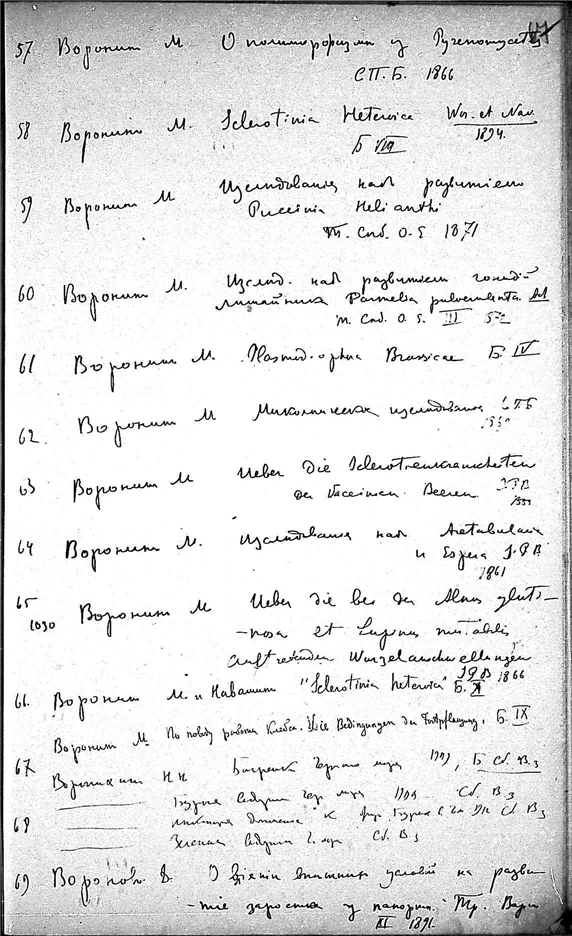 57 Воронин М. О полиморфизме у
С П. Б. 1866
58 Воронин М. Sclerotinia Heteroica Wor. et Naw.
1894.
Б VIII
59 Воронин М Изследования над развитием
Puccinia Helianthi
Тр. Спб. О. Е 1871
60 Воронин М. Изслед. над развитием гонидий
лишайника Parmelia pulverulenta
Тр. Спб. О. Е. III
61 Воронин М. Plasmodiophora Brassicae Б. IV
62. Воронин М Микологическия изследования С.П.Б
63 Воронин М Ueber die Sclerotienkrankheiten
der Vaccinien Beeren
64 Воронин М. Изследования над Acetabularia
и Espera
1861
65
1030 Воронин М Ueber die bei der Alnus gluti-
-nosa et Lupinus mutabilis
auftretenden Wurzelanschwellungen
1866
66. Воронин М. и Навашин "Sclerotinia heteroica" Б. X
Воронин М. По поводу работы Клебса. Die Bedingungen der Fortpflanzung. Б. IX
67 Воронихин Н Н Багрянки Черного моря 1909, Б Сб. В 3
Бурыя водоросли Чер моря Сб. В 3
68 Сб В 3
Зеленыя водоросли Ч. моря Сб. В 3
69 Воронов О влиянии внешних условий на разви-
-тие заростка у папоротн. Тр. Варш
III 1891.